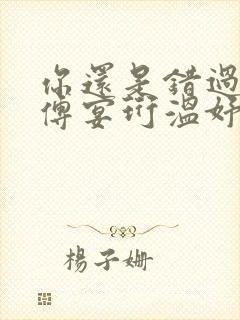 你還是錯過
傅宴珩溫妤
楊子姍